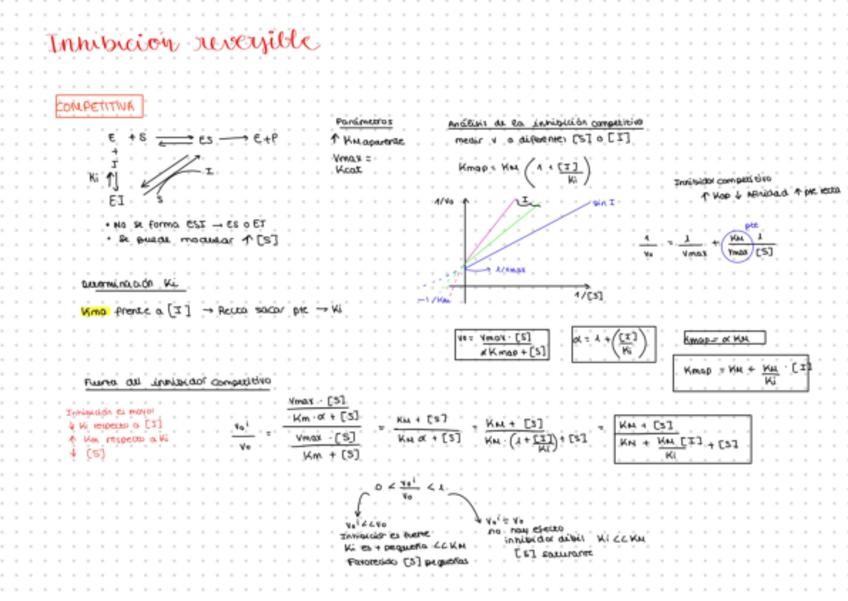 Inhibición reversible
COMPETITIVA
E + S ⇌ ES → E+P
+
I
Ki
I
EI
S
• No se forma ESI → ES o EI
• Se puede modular ↑ [S]
Parámetros
↑ KM aparente
Vmax =
Kcat
Análisis de la inhibición competitiva
medir v a diferentes [S] o [I]
Kmap = KM (1 + [I]/Ki)
1/v₀
I
sin I
1/vmax
-1/KM
1/[S]
Inhibidor competitivo
↑ Kap ↓ Afinidad ↑ pte recta
pte
1/v₀ = 1/vmax + KM/vmax 1/[S]
Determinación Ki
Kma frente a [I] → Recta sacar pte → Ki
v₀ = Vmax · [S] / αKmap + [S]
α = 1 + ([I]/Ki)
Kmap = α KM
Kmap = KM + KM/Ki · [I]
Fuerza del inhibidor competitivo
Inhibición es mayor
↓ Ki respecto a [I]
↑ Km respecto a Ki
↓ [S]
v₀ⁱ/v₀ = (Vmax · [S] / Km · α + [S]) / (Vmax · [S] / Km + [S]) = KM + [S] / KM α + [S] = KM + [S] / KM · (1 + [I]/Ki) + [S] = KM + [S] / KM + KM [I]/Ki + [S]
0 < v₀ⁱ/v₀ < 1
v₀ⁱ << v₀
Inhibición es fuerte
Ki es + pequeña << KM
Favorecido [S] pequeñas
v₀ⁱ = v₀
no hay efecto
inhibidor débil Ki << KM
[S] saturante